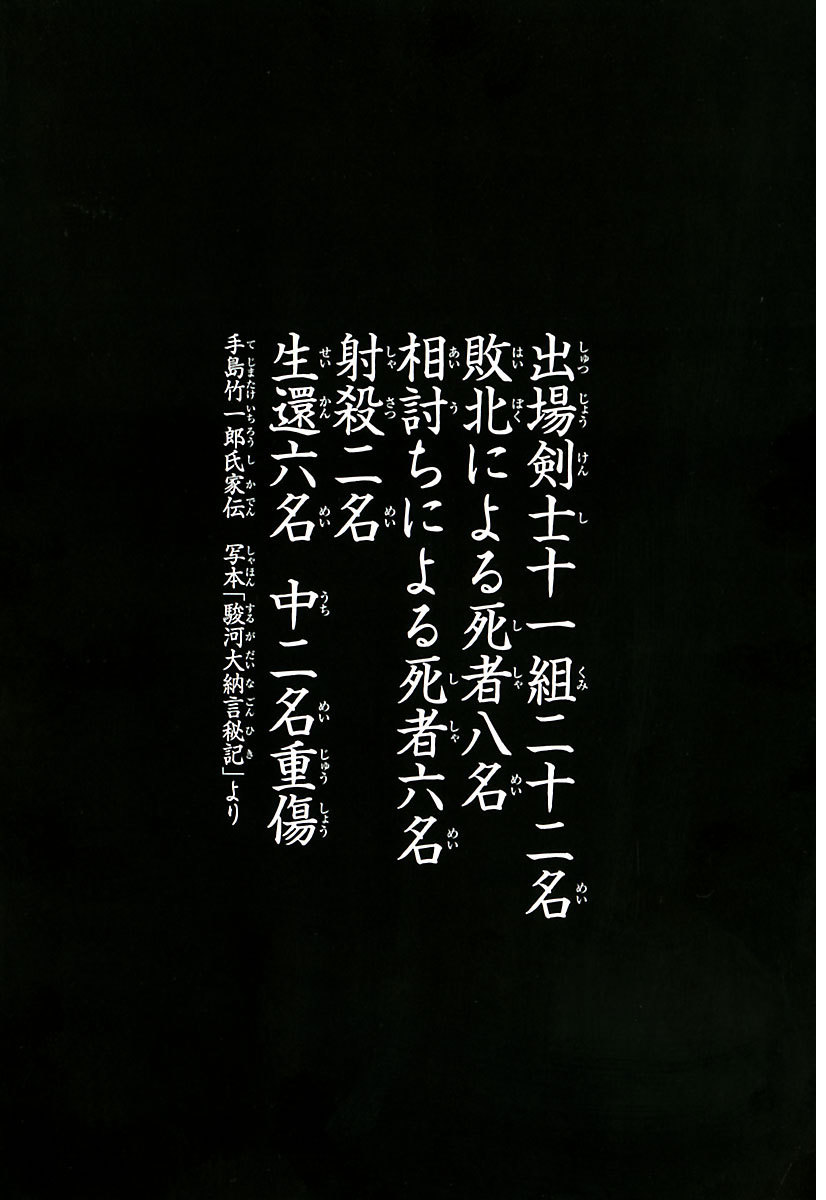 出場剣士十一組二十二名
敗北による死者八名
相討ちによる死者六名
射殺二名
生還六名　中二名重傷
手島竹一郎氏家伝　写本「駿河大納言秘記」より